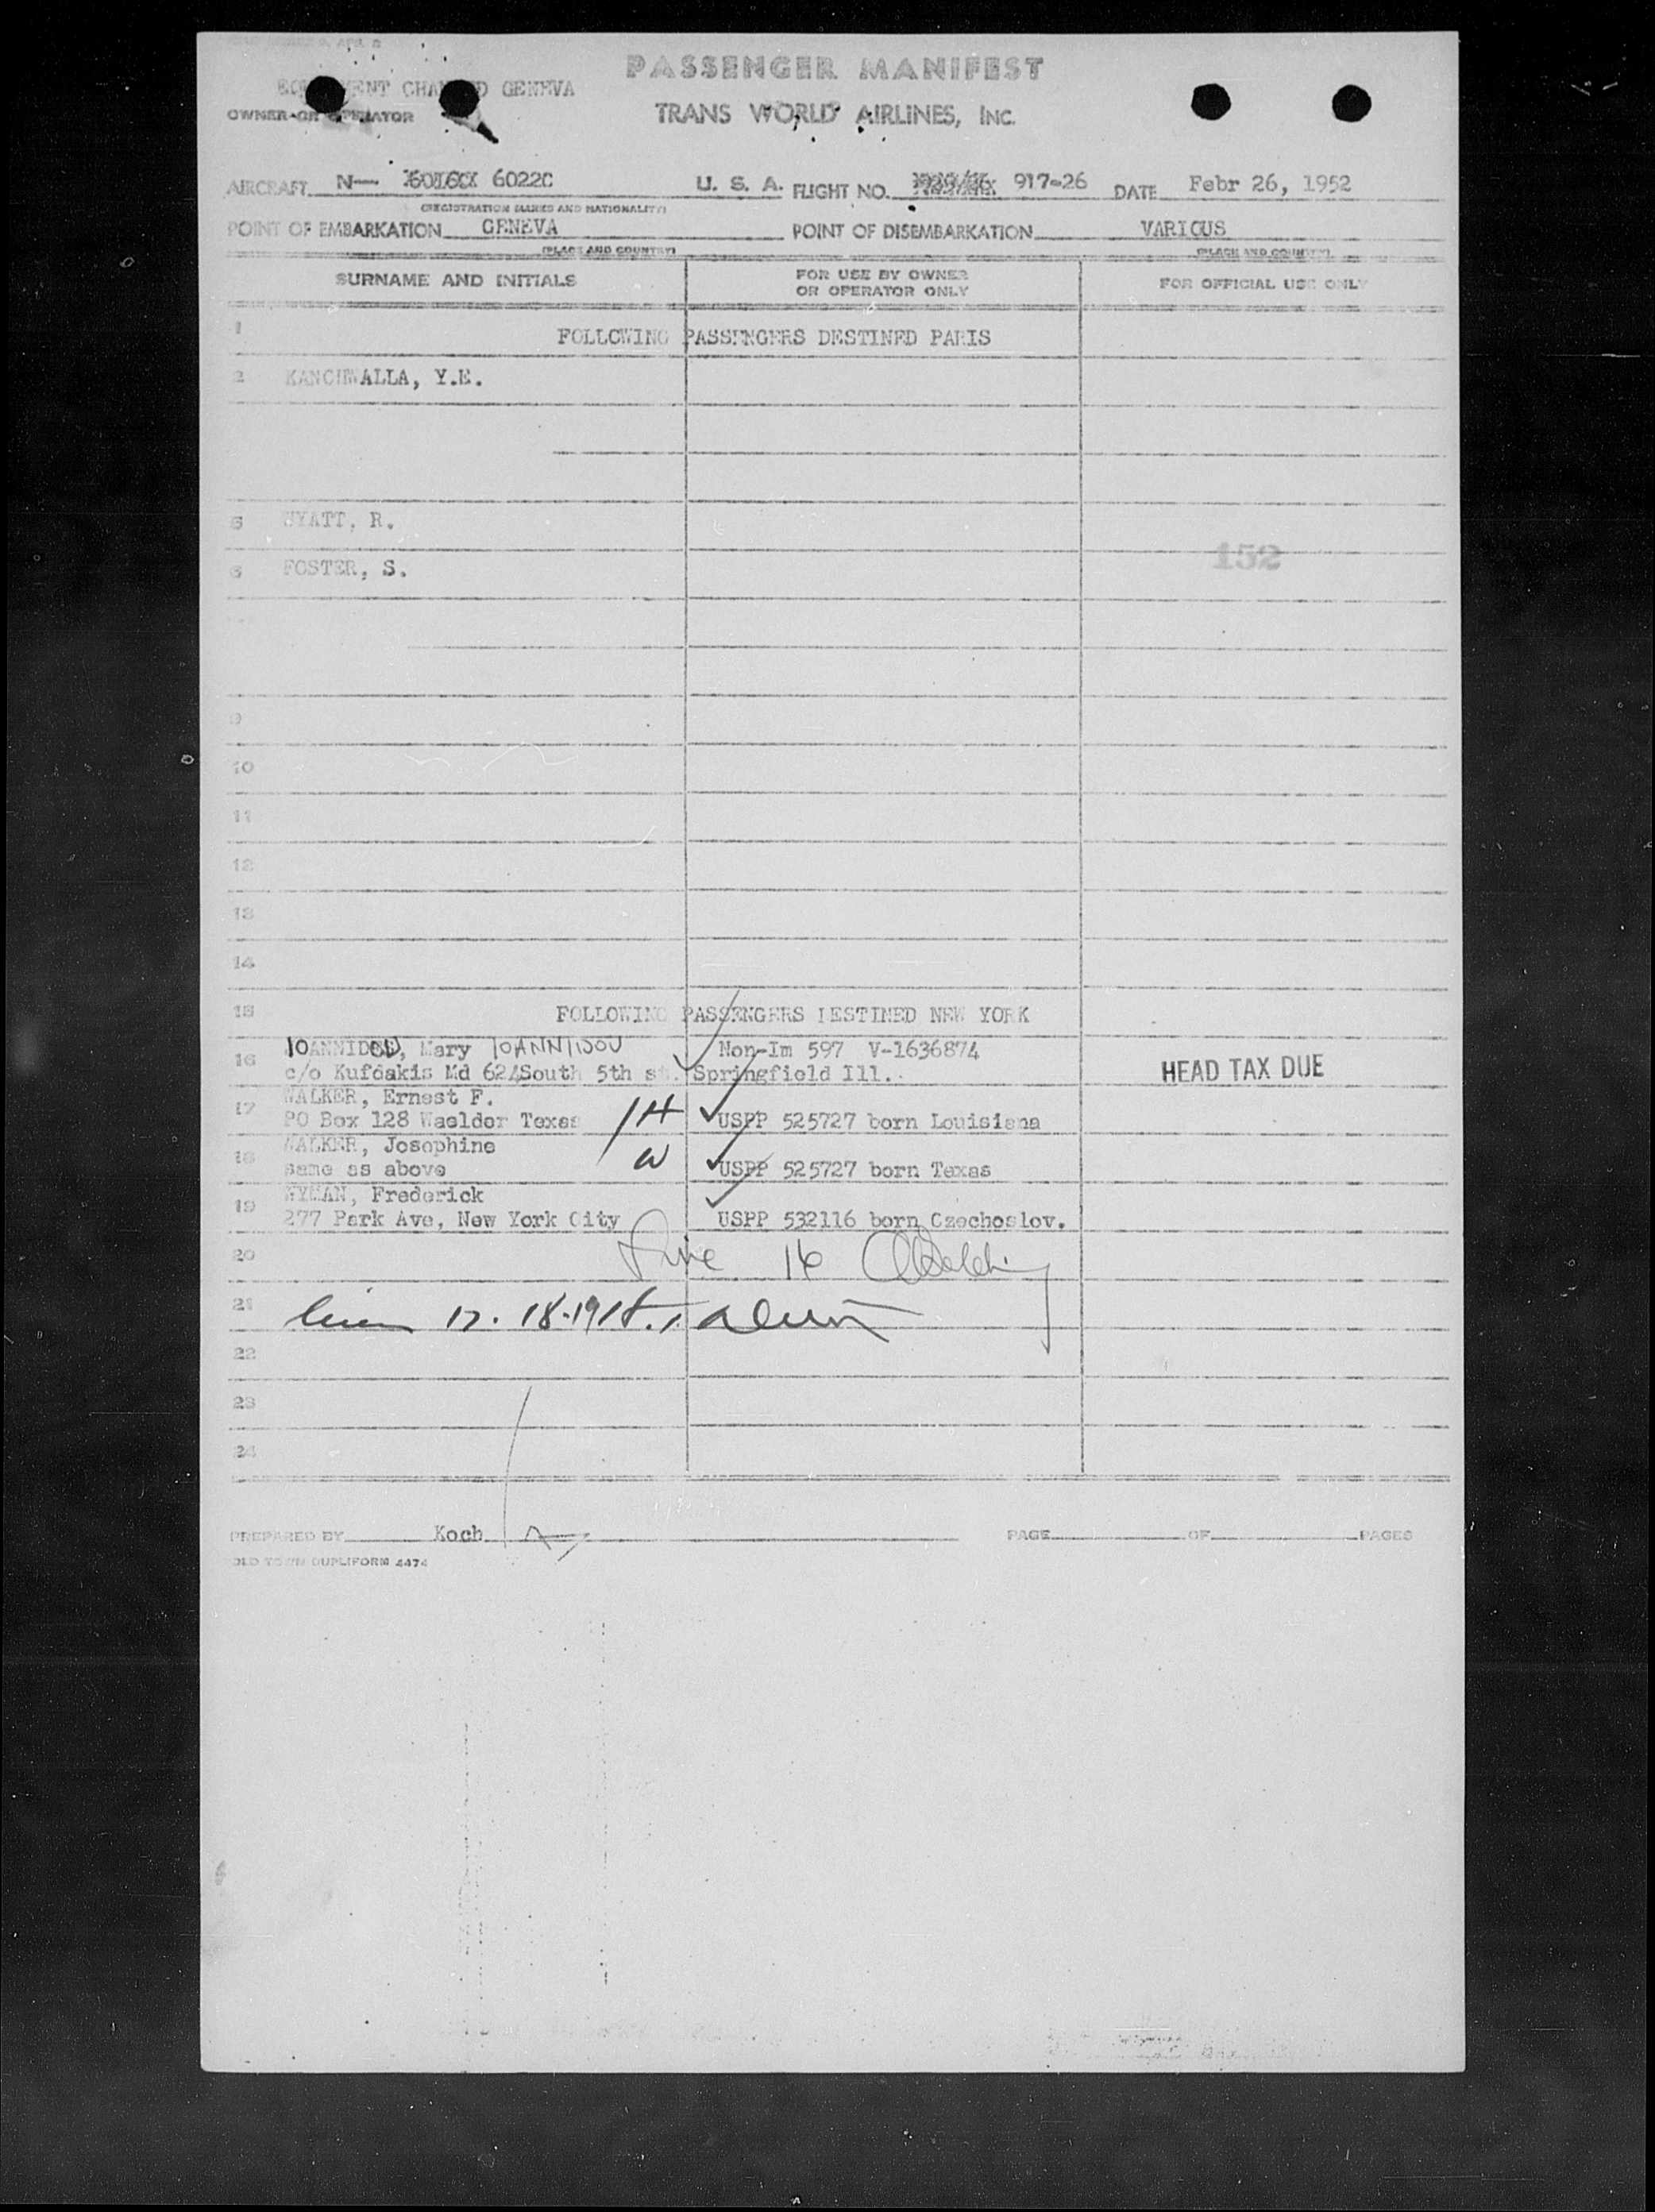 PASSENGER MANIFEST
GENEVA
OWNER OR OPERATOR
TRANS WORLD AIRLINES, INC.
AIRCRAFT N— 6022C U. S. A. FLIGHT NO. 917-26 DATE Febr 26, 1952
(REGISTRATION MARKS AND NATIONALITY)
POINT OF EMBARKATION GENEVA POINT OF DISEMBARKATION VARIOUS
(PLACE AND COUNTRY) (PLACE AND COUNTRY)
SURNAME AND INITIALS FOR USE BY OWNER OR OPERATOR ONLY FOR OFFICIAL USE ONLY
1 FOLLOWING PASSENGERS DESTINED PARIS
2 KANCHWALLA, Y.E.
5 WYATT, R.
152
6 FOSTER, S.
9
10
11
12
13
14
15 FOLLOWING PASSENGERS DESTINED NEW YORK
16 IOANNIDOU, Mary IOANNIDOU Non-Im 597 V-1636874
c/o Kufdakis Md 624 South 5th st. Springfield Ill. HEAD TAX DUE
17 WALKER, Ernest F.
PO Box 128 Waelder Texas H USPP 525727 born Louisiana
18 WALKER, Josephine
same as above W USPP 525727 born Texas
19 WYMAN, Frederick
277 Park Ave, New York City USPP 532116 born Czechoslov.
20 Line 16
21 17. 18-19
22
23
24
PREPARED BY Koch PAGE OF PAGES
OLD TOWN DUPLIFORM 4474